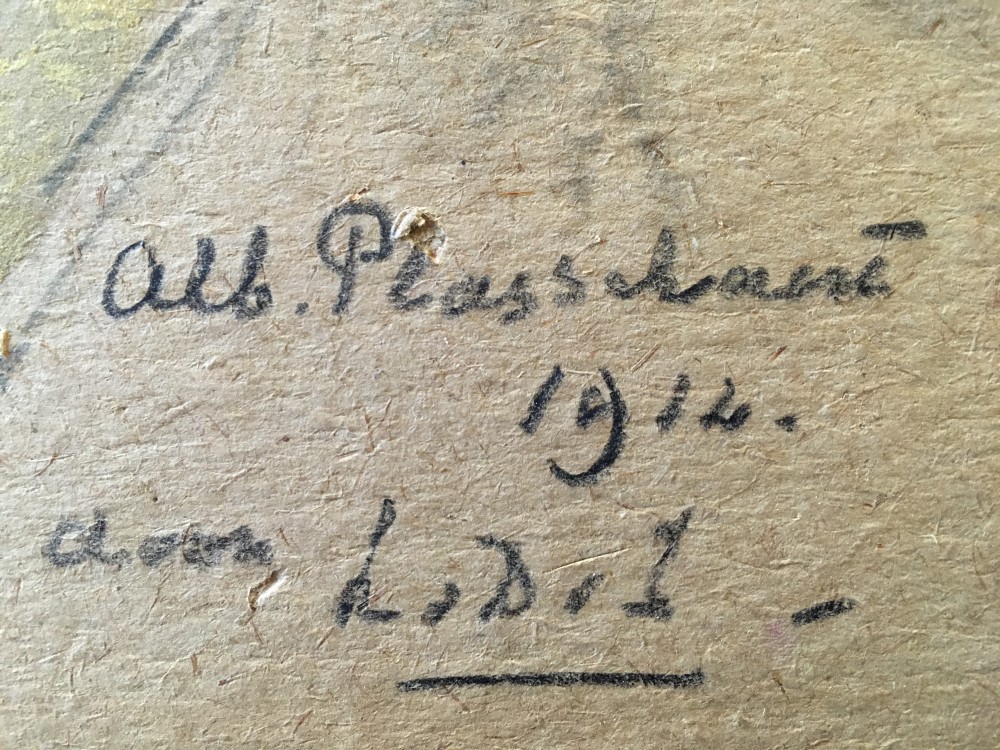 Alb. Plasschaert
1912.
L.D.I -